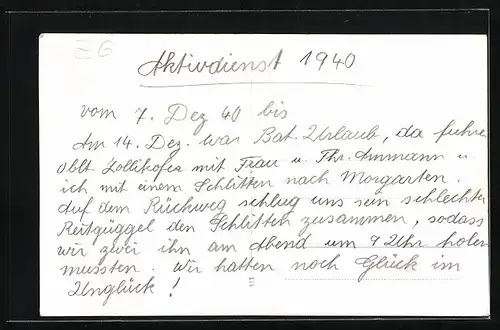 ZG
Aktivdienst 1940
vom 7. Dez 40 bis
Am 14. Dez. war Bat. Urlaub, da fuhren
Oblt. Zollikofer mit Frau u. Thr. Ammann u.
ich mit einem Schlitten nach Morgarten.
Auf dem Rückweg schlug uns sein schlechter
Reitgüggel den Schlitten zusammen, sodass
wir zwei ihn am Abend um 9 Uhr holen
mussten. Wir hatten noch Glück im
Unglück!